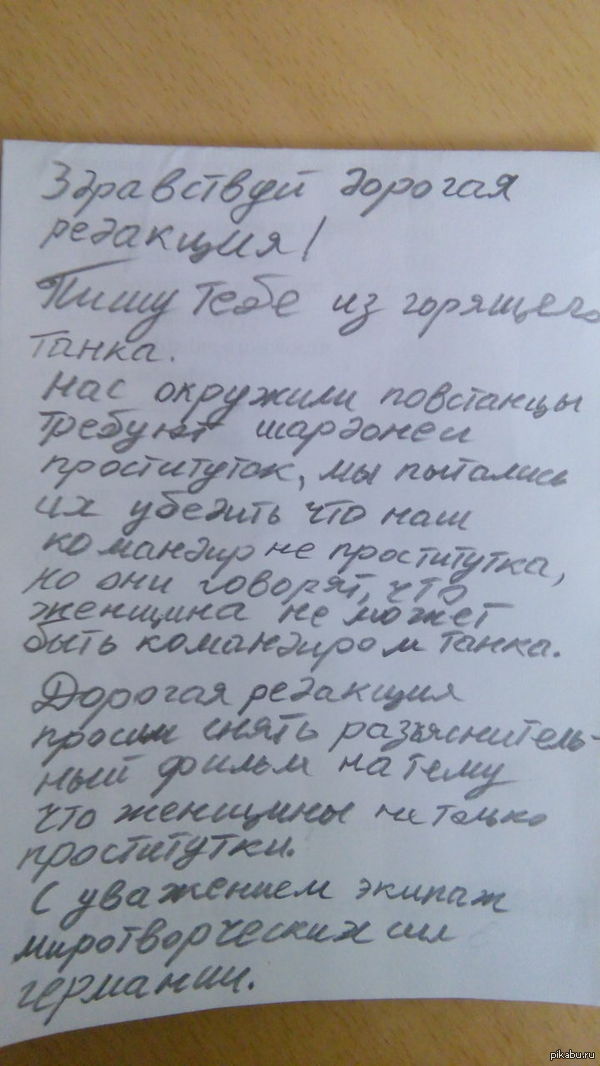 Здравствуй дорогая
редакция!
Пишу тебе из горящего
танка.
нас окружили повстанцы
требуют шардоне и
проституток, мы пытались
их убедить что наш
командир не проститутка,
но они говорят, что
женщина не может
быть командиром танка.
Дорогая редакция
просим снять разъяснитель-
ный фильм на тему
что женщины не только
проститутки.
С уважением экипаж
миротворческих сил
германии.
pikabu.ru